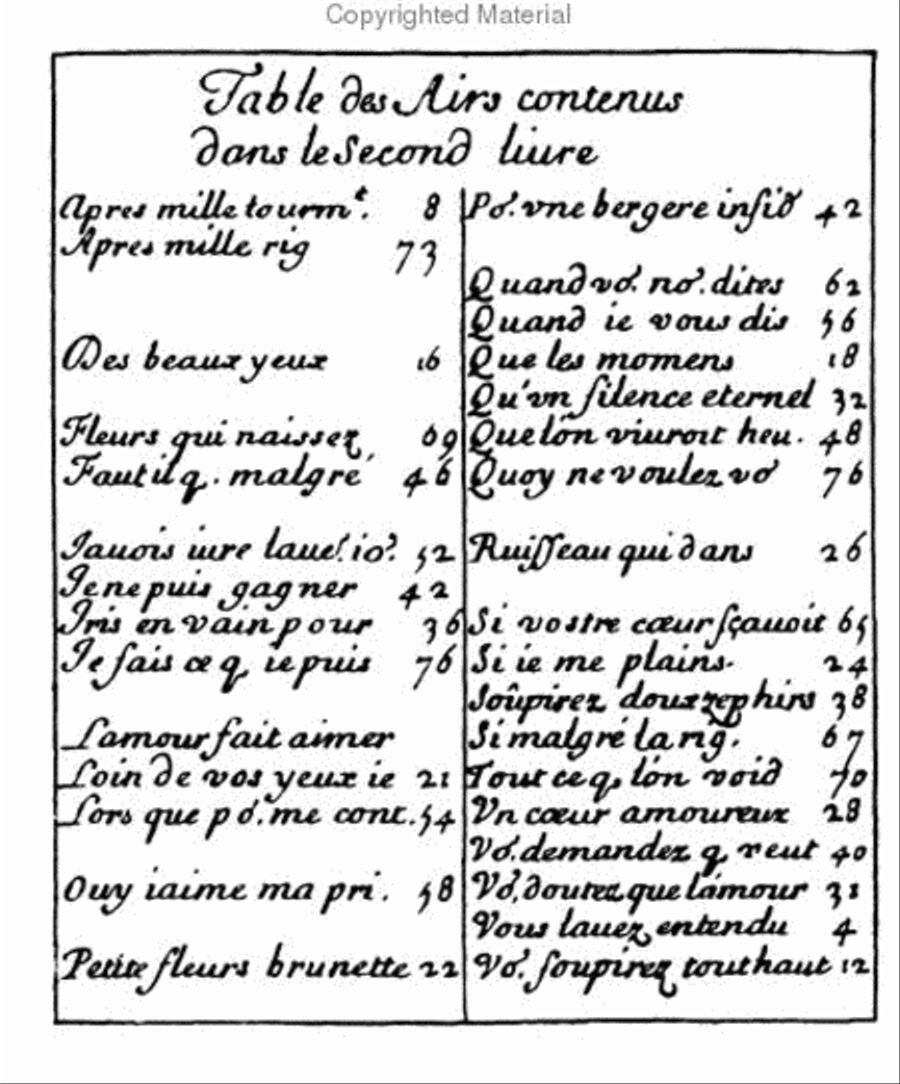 Copyrighted Material
Table des Airs contenus
dans le Second liure
Apres mille tourmt. 8
Apres mille rig 73
Des beaux yeux 16
Fleurs qui naissez 69
Faut il q. malgré 46
Jauois iure 52
Je ne puis gagner 42
Iris en vain pour 36
Je fais ce q ie puis 76
Lamour fait aimer
Loin de vos yeux ie 21
Lors que po. me cont. 54
Ouy iaime ma pri. 58
Petite fleurs brunette 22
Po. vne bergere infid 42
Quand vo. no. dites 62
Quand ie vous dis 56
Que les momens 18
Qu'vn silence eternel 32
Que lon viuroit heu. 48
Quoy ne voulez vo 76
Ruisseau qui dans 26
Si vostre cœur sçauoit 65
Si ie me plains. 24
Soûpirez doux zephirs 38
Si malgré la rig. 67
Tout ce q, lón void 70
Vn cœur amoureux 28
Vo. demandez q, veut 40
Vo, doutez que lámour 31
Vous lauez entendu 4
Vo. soupirez tout haut 12